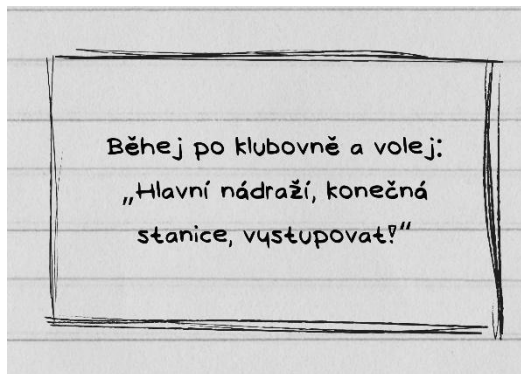 Běhej po klubovně a volej:
„Hlavní nádraží, konečná
stanice, vystupovat!“